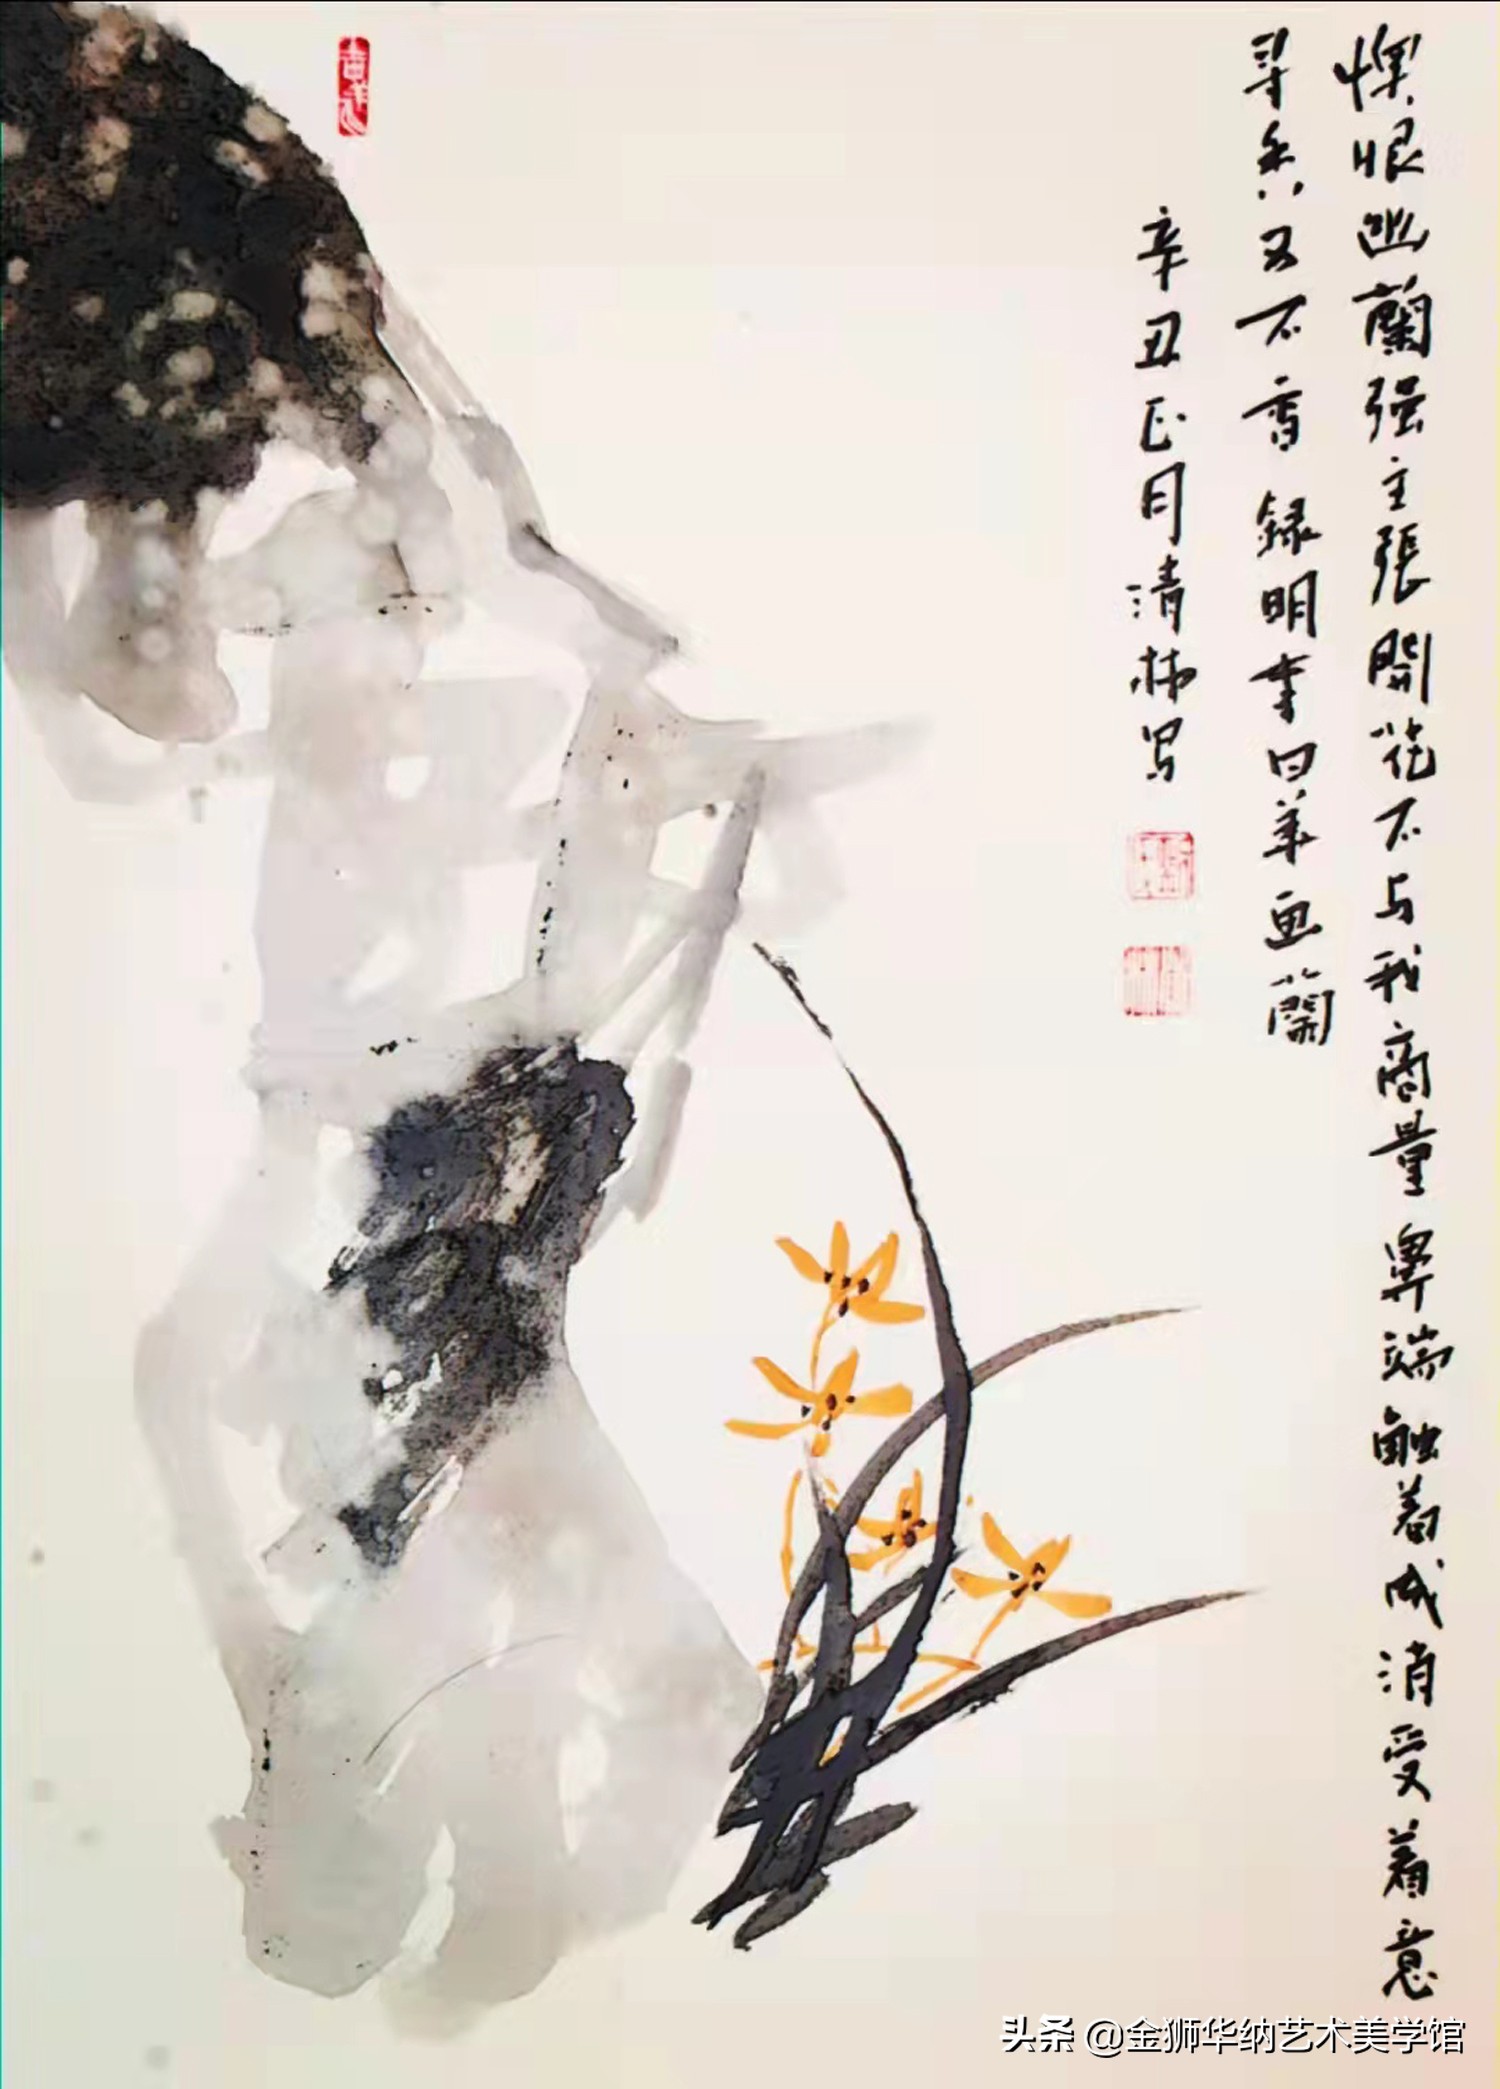 懊恨幽蘭强主張開花不与我商量鼻端触着成消受着意
寻香又不香録明李日華画蘭
辛丑正月清林写
头条 @金狮华纳艺术美学馆